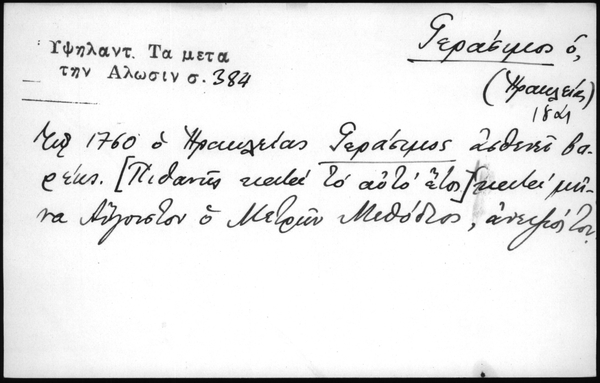 Ὑψηλαντ. Τα μετα
την Αλωσιν σ. 384
Γεράσιμος ὁ,
(Ἡρακλείας)
1760 ὁ Ἡρακλείας Γεράσιμος ἀσθενεῖ βα-
ρέως. [Πιθανῶς κατὰ τὸ αὐτὸ ἔτος] κατὰ μῆ-
να Αὔγουστον ὁ Μετρῶν Μεθόδιος, ἀνεψιός του.